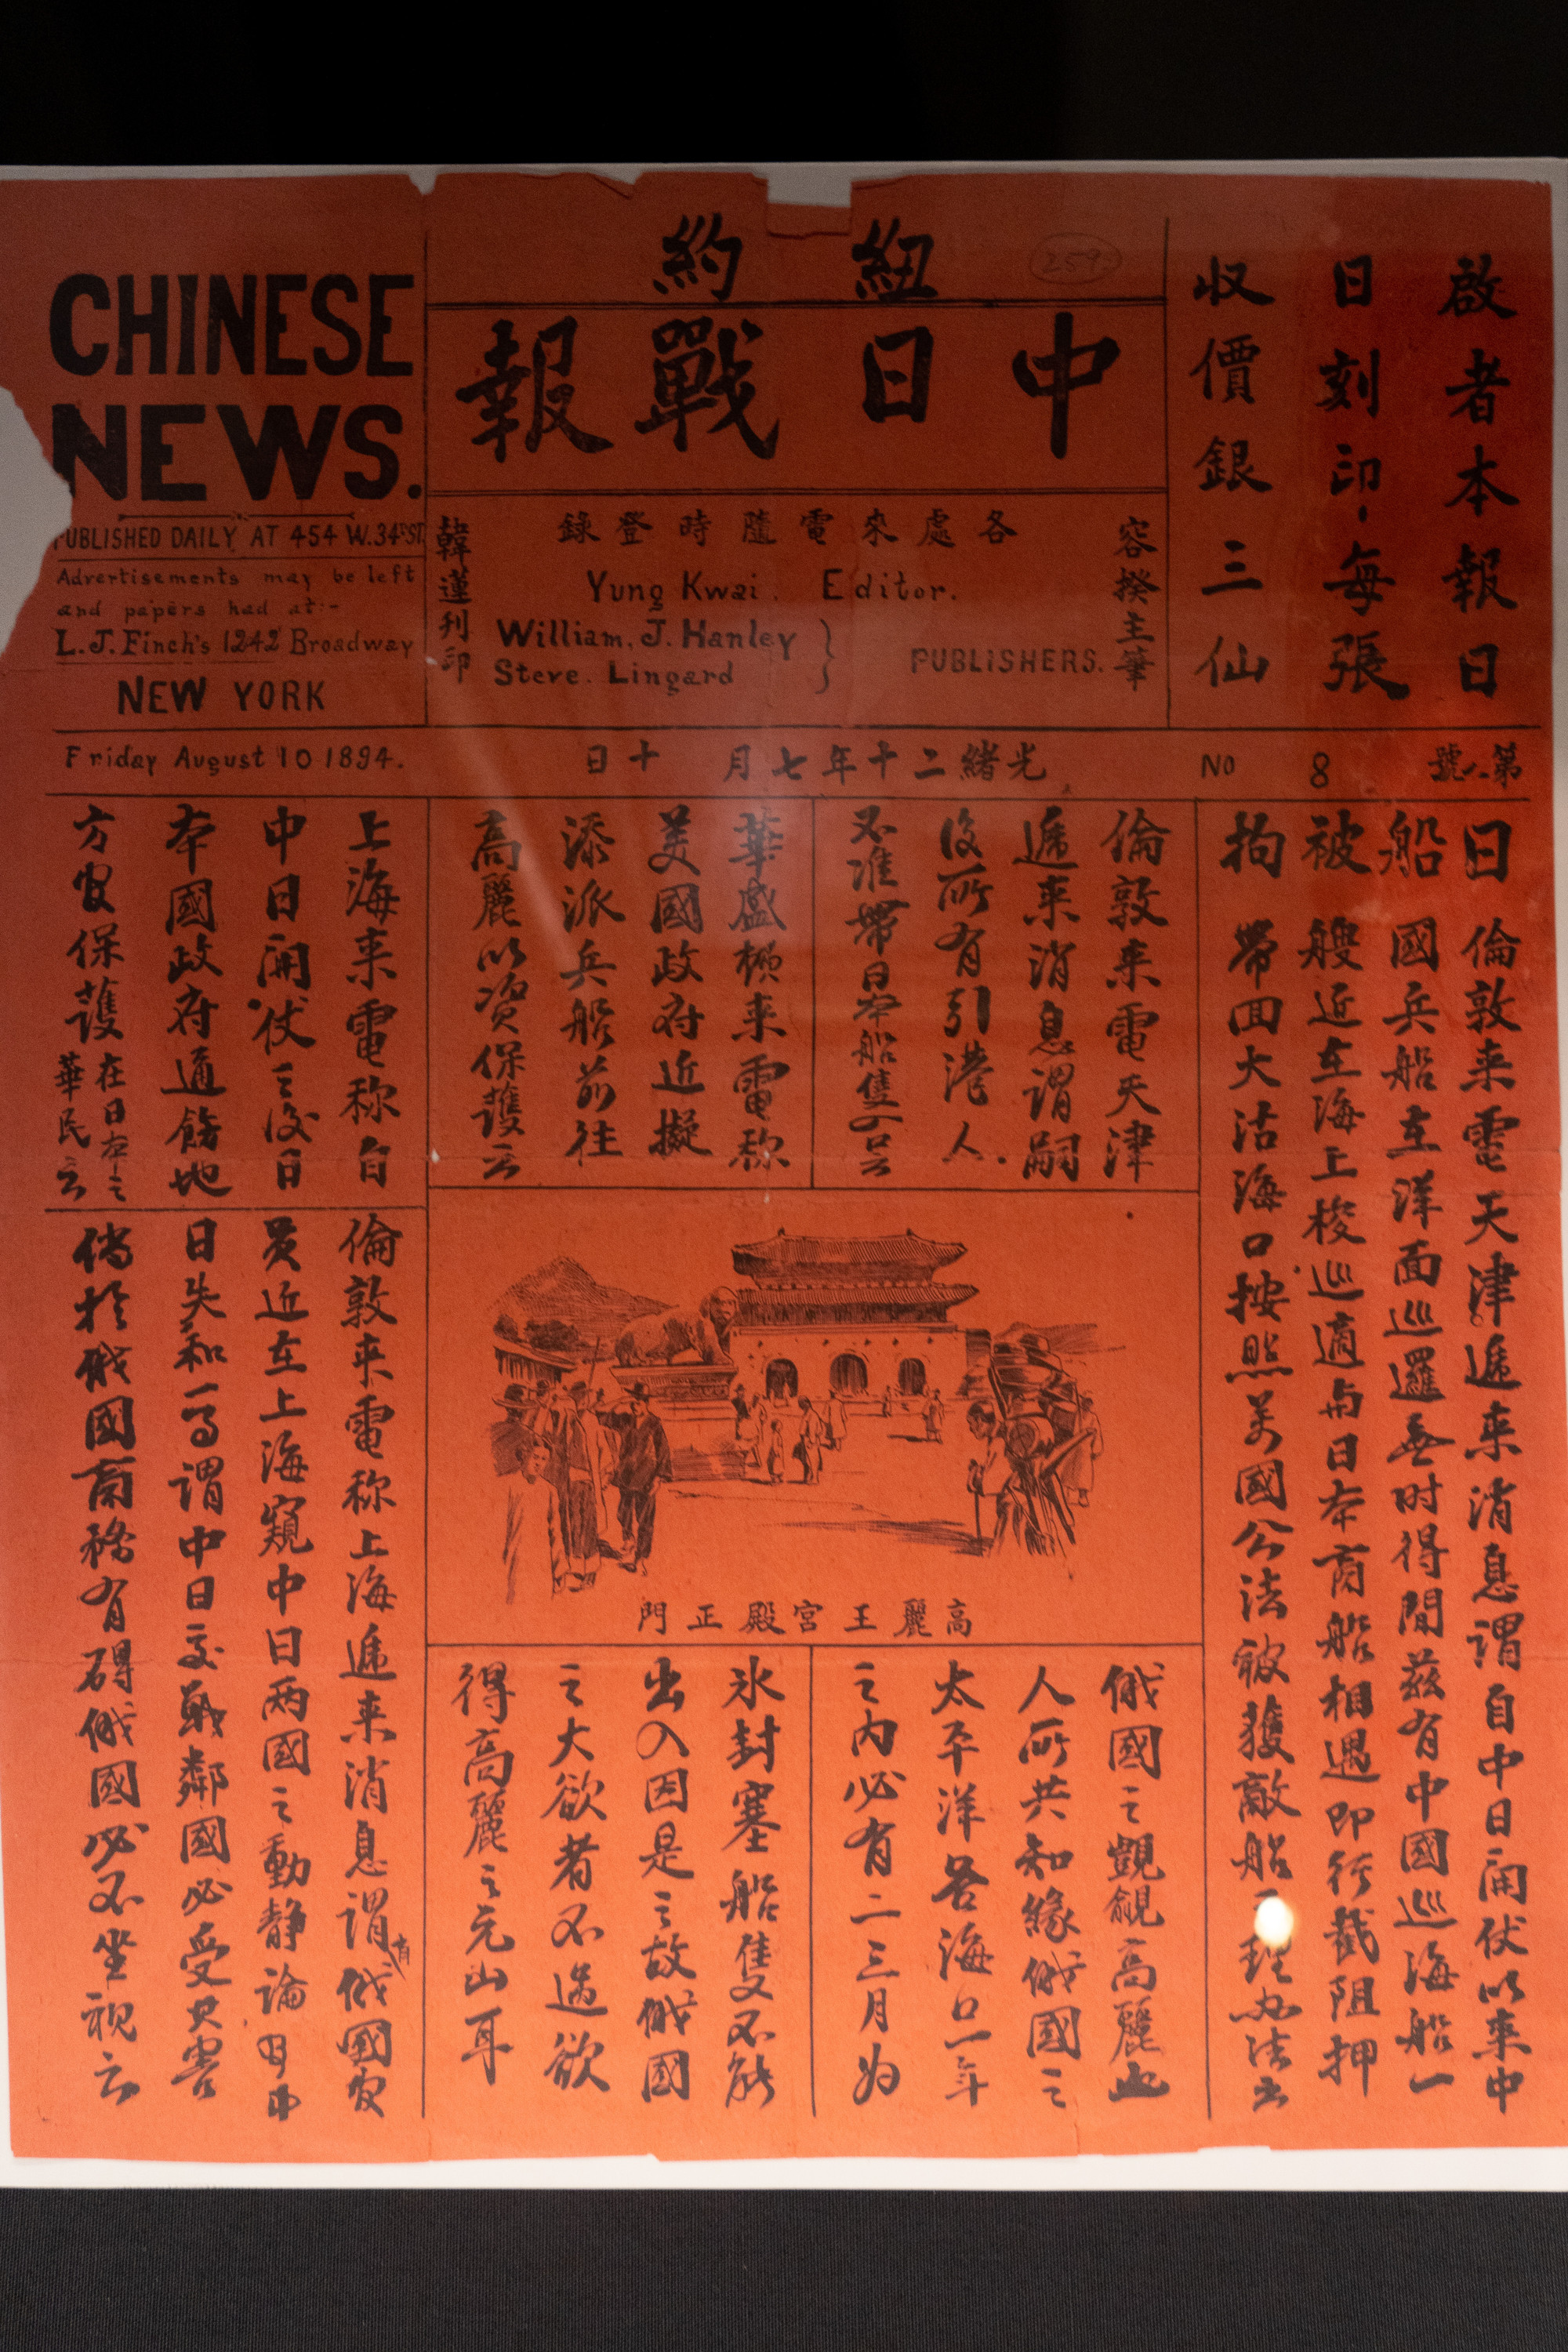 啟者本報日
日刻印、每張
収價銀三仙
259
紐約
中日戰報
各處來電隨時登錄
容揆主筆
Yung Kwai. Editor.
William. J. Hanley
Steve. Lingard
PUBLISHERS.
韓蓮刊印
CHINESE
NEWS.
PUBLISHED DAILY AT 454 W. 34th ST.
Advertisements may be left
and papers had at:-
L.J. Finch's 1242 Broadway
NEW YORK
第八號
No 8
光緒二十年七月十日
Friday August 10 1894.
日船被拘
倫敦来電天津遞来消息謂自中日開仗以来中
國兵船在洋面巡邏無时得閒茲有中國巡海船一
艘近在海上梭巡適與日本商船相遇即行截阻押
帶囬大沽海口按照萬國公法被獲敵船
倫敦来電天津
遞来消息謂嗣
後所有引港人
不准帶日本船隻
華盛頓来電称
美國政府近擬
添派兵船前往
高麗以資保護云
上海来電称自
中日開仗之後日
本國政府通飭地
方官保護在日本之華民云
高麗王宮殿正門
俄國之覬覦高麗也
人所共知緣俄國之
太平洋各海口一年
之内必有二三月为
氷封塞船隻不能
出入因是之故俄國
之大欲者不過欲
得高麗之元山耳
倫敦来電称上海遞来消息謂有俄國官
員近在上海窺中日两國之動靜論
日失和一事謂中日交戰鄰國必受其害
倘於俄國商務有碍俄國必不坐視云